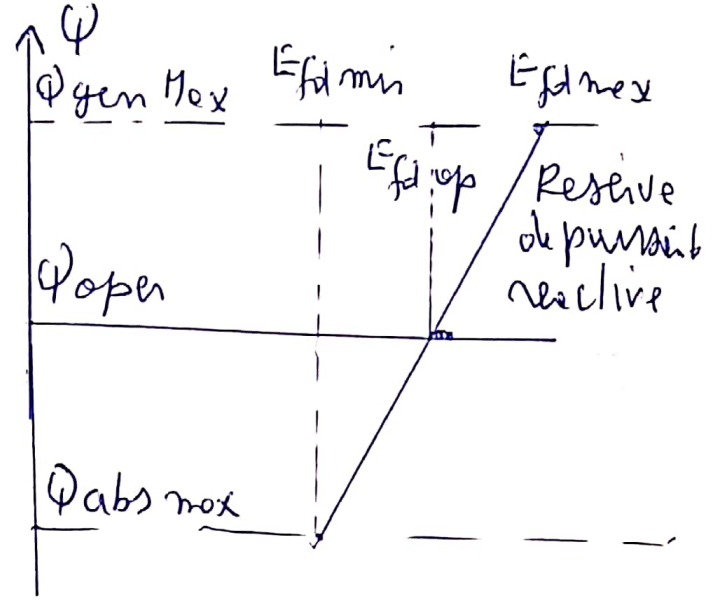 Q
Qgen Max
Efd min
Efd max
Efd op
Réserve
de puissance
réactive
Qoper
Qabs max